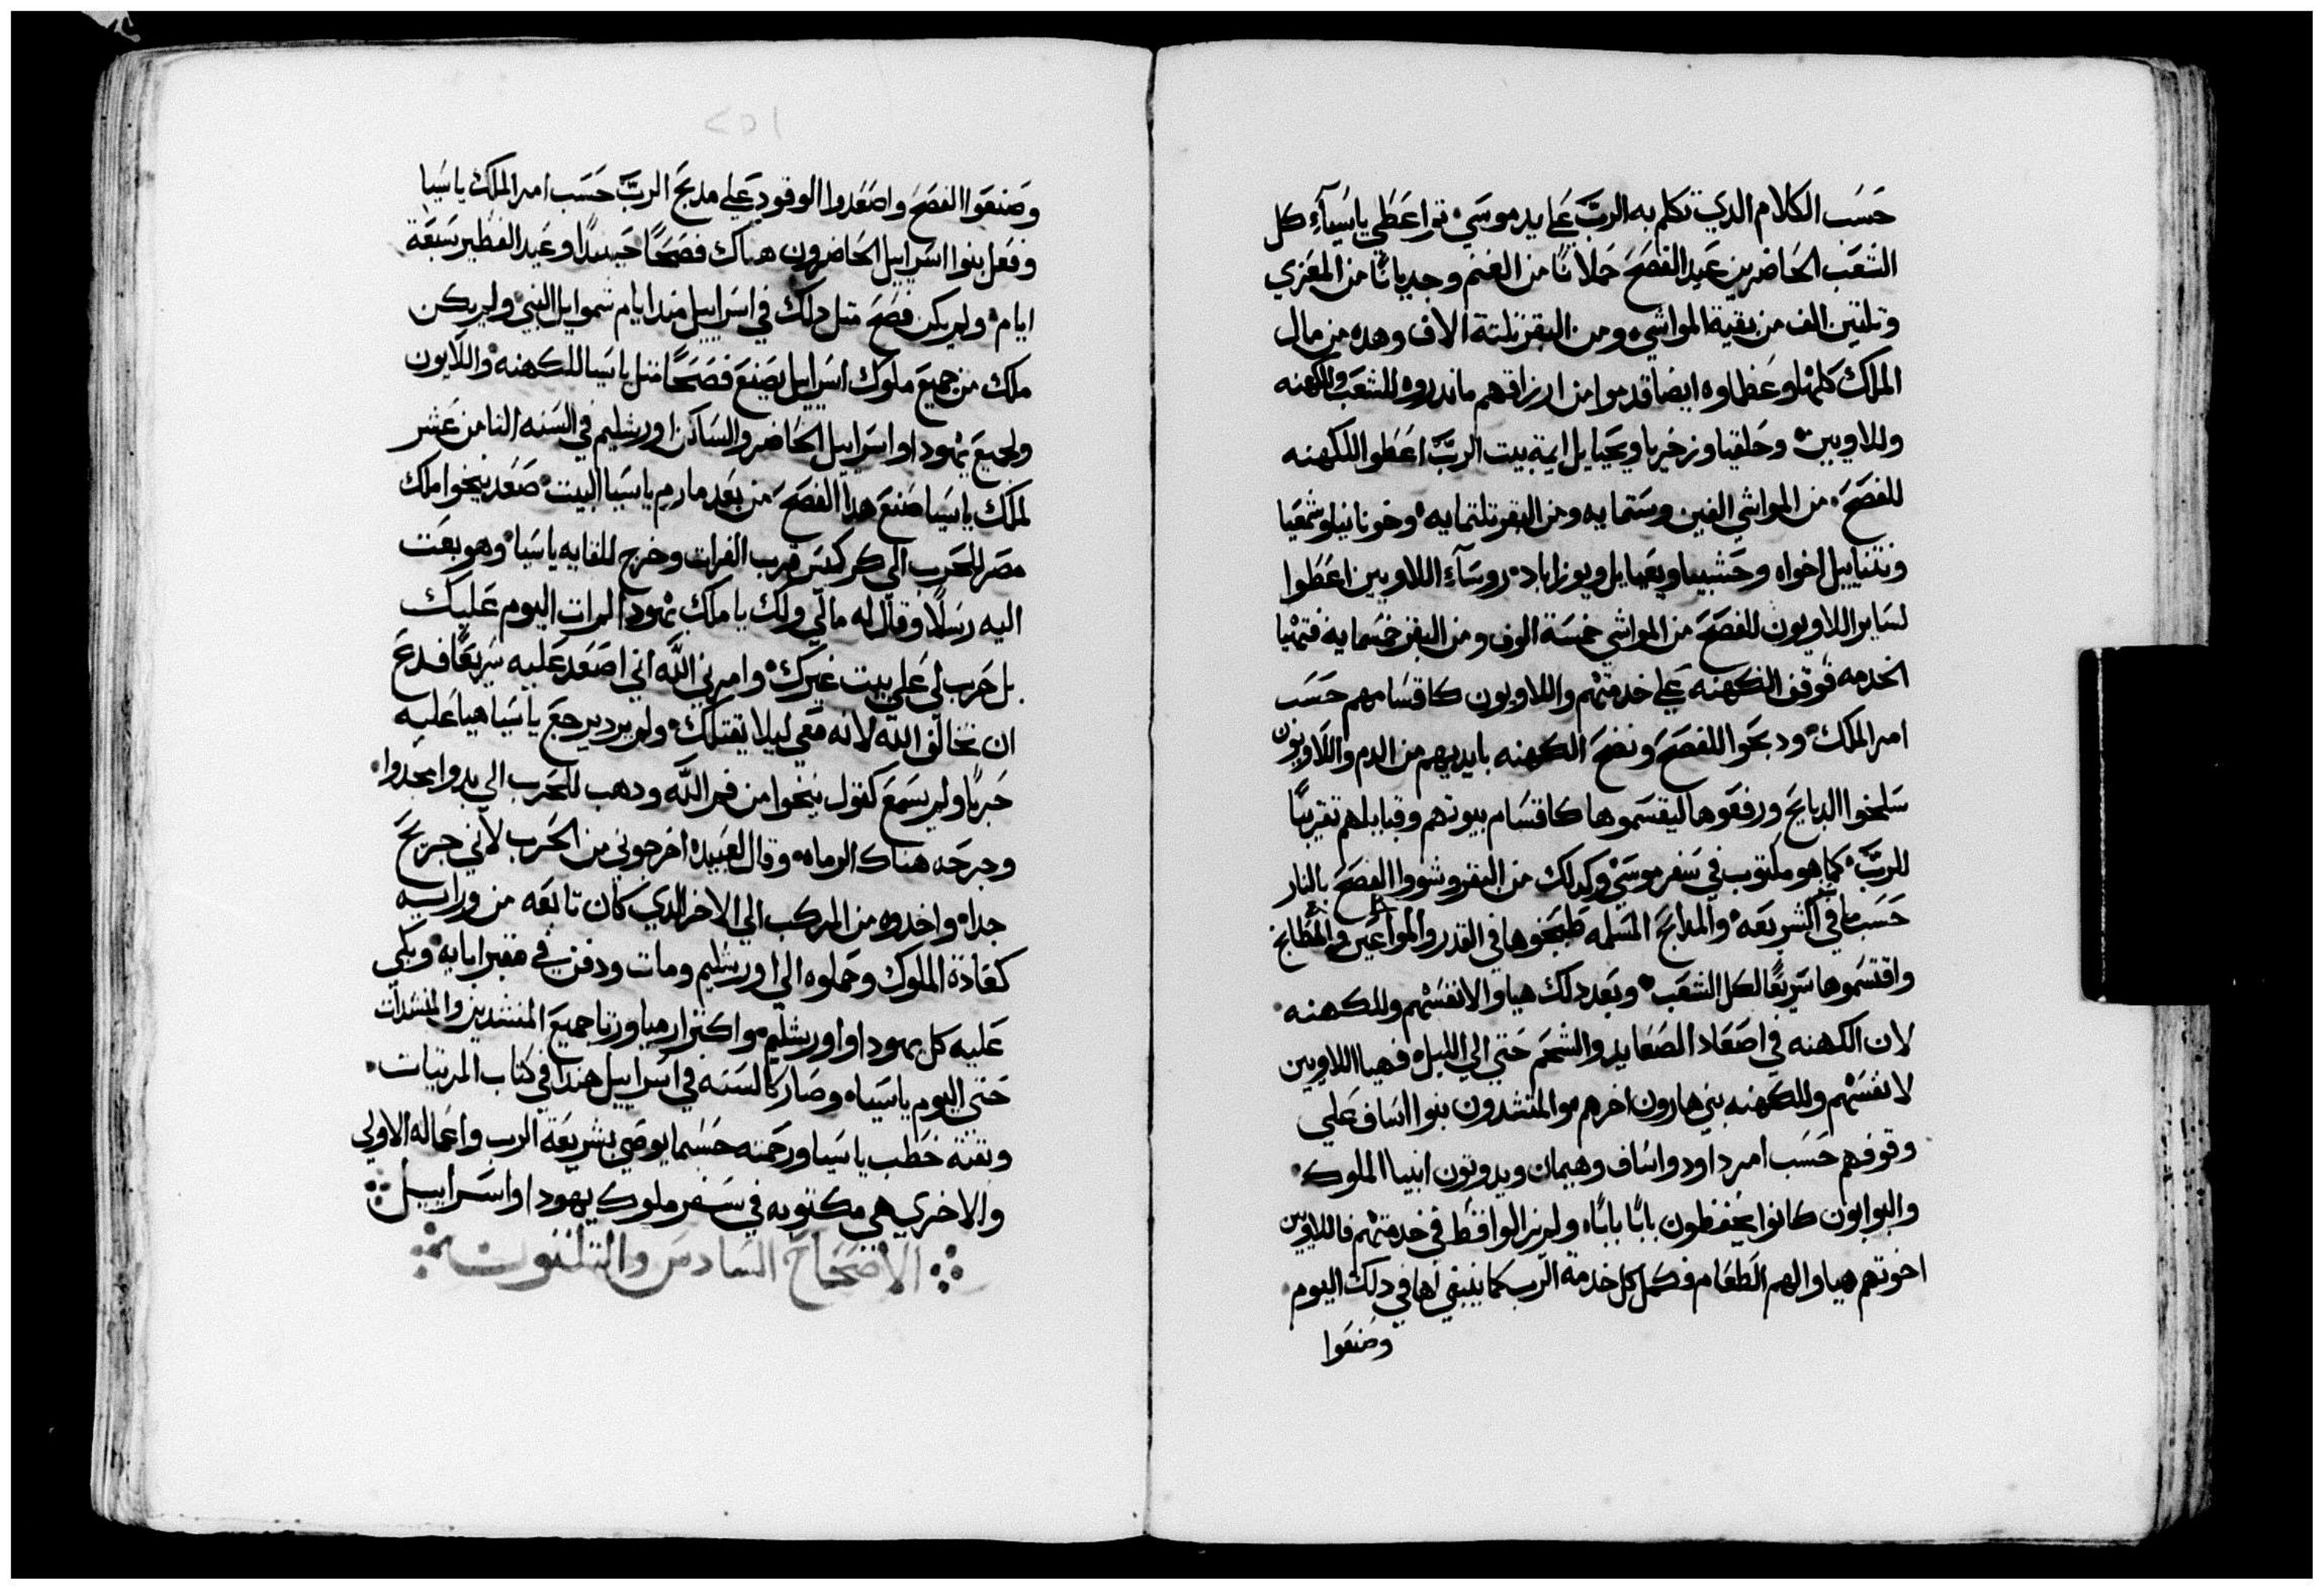 حسب الكلام الدي تكلم به الرب على يد موسي تم اعطي ياسياء كل
الشعب الحاضرين عيد الفصح حملانا من الغنم وجديانا من المعزي
وتلتين الف من بقية المواشي ومن البقر تلتة الاف وهده من مال
الملك كلها وعظماوه ايضا قدموا من ارزاقهم ماندروه للشعب وللكهنه
وللاويين وحلقيا وزخريا ويحيايل ايمة بيت الرب اعطوا اللكهنه
للفصح من المواشي الفين وستمايه ومن البقر تلتمايه وخونانيا وشمعيا
ونتناييل اخواه وحشبيا ويعيايل ويوزاباد روساء اللاويين اعطوا
لساير اللاويون للفصح من المواشي خمسة الوف ومن البقر خمسمايه فتهيا
الخدمه فوقف الكهنه على خدمتهم واللاويون كاقسامهم حسب
امر الملك ودبحوا للفصح ونضح الكهنه بايديهم من الدم واللاويون
سلخوا الدبايح ورفعوها ليقسموها كاقسام بيوتهم وقبايلهم تقريبا
للرب كما هو مكتوب في سفر موسي وكدلك من البقر وشووا الفصح بالنار
حسب ما في الشريعه والمدابح المسلمه طبخوها في القدر والمواعين في المطابخ
واقتسموها سريعا لكل الشعب وبعد دلك هياوا لانفسهم وللكهنه
لان الكهنه في اصعاد الصعايد والشحم حتي الي الليل فهيا اللاويين
لانفسهم وللكهنه بني هارون اخرهم والمنشدون بنوا اساف علي
وقوفهم حسب امر داود واساف وهيمان ويدوتون انبيا الملوك
والبوابون كانوا يحفظون بابا بابا ولم يزالوا قط في خدمتهم فاللاويين
اخوتهم هياوا لهم الطعام فكمل كل خدمة الرب كما ينبغي لها في دلك اليوم
وصنعوا
٢٥١
وصنعوا الفصح واصعدوا الوقود على مدبح الرب حسب امر الملك ياسيا
وفعل بنوا اسراييل الحاضرون هناك فصحا حينيدا وعيد الفطير سبعة
ايام ولم يكن فصح متل دلك في اسراييل مند ايام شموايل النبي ولم يكن
ملك من جميع ملوك اسراييل يصنع فصحا متل ياسيا للكهنه واللاويون
ولجميع يهودا واسراييل الحاضر والساكن اورشليم في السنه التامن عشر
لملك ياسيا صنع هدا الفصح من بعد مارم ياسيا البيت صعد نيخوا ملك
مصر للحرب الي كركميس قرب الفرات وخرج للقايه ياسيا وهو بعت
اليه رسلا وقال له مالي ولك يا ملك يهودا لم ات اليوم عليك
بل حرب لي على بيت غيرك وامرني الله اني اصعد عليه سريعا فدع
ان تخالف الله لانه معي ليلا يقتلك ولم يرد يرجع ياسيا هيا عليه
حربا ولم يسمع كقول نيخوا من فم الله ودهب للحرب الي بدوا مجدوا
وجرحه هناك الرماه وقال لعبيده اخرجوني من الحرب لاني جريح
جدا واخدوه من المركب الي الاخر الدي كان تابعه من ورايه
كعادة الملوك وحملوه الي اورشليم ومات ودفن في مقبر ابايه وبكي
عليه كل يهودا واورشليم واكتر ارميا ورتا جميع المنشدين والمنشدات
حتي اليوم ياسياه وصار كالسنه في اسراييل هندا في كتاب المرتيات
وبقية خطب ياسيا ورحمته حسبما يوصي بشريعة الرب واعماله الاولي
والاخري هي مكتوبه في سفر ملوك يهودا واسراييل
الاصحاح السادس والتلتون